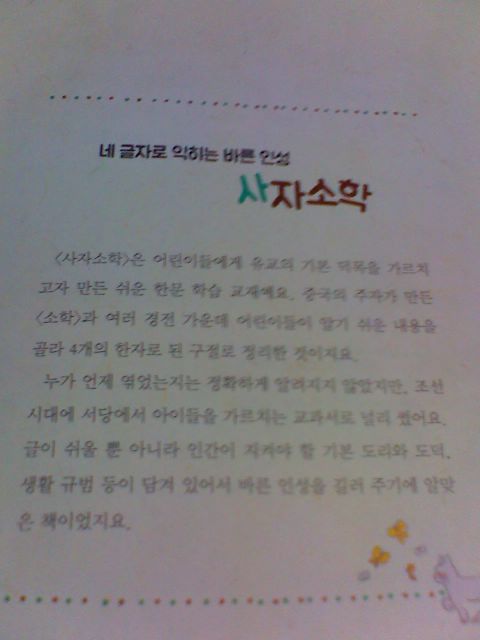 네 글자로 익히는 바른 인성
사자소학
<사자소학>은 어린이들에게 유교의 기본 덕목을 가르치
고자 만든 쉬운 한문 학습 교재예요. 중국의 주자가 만든
<소학>과 여러 경전 가운데 어린이들이 알기 쉬운 내용을
골라 4개의 한자로 된 구절로 정리한 것이지요.
누가 언제 엮었는지는 정확하게 알려지지 않았지만, 조선
시대에 서당에서 아이들을 가르치는 교과서로 널리 썼어요.
글이 쉬울 뿐 아니라 인간이 지켜야 할 기본 도리와 도덕,
생활 규범 등이 담겨 있어서 바른 인성을 길러 주기에 알맞
은 책이었지요.